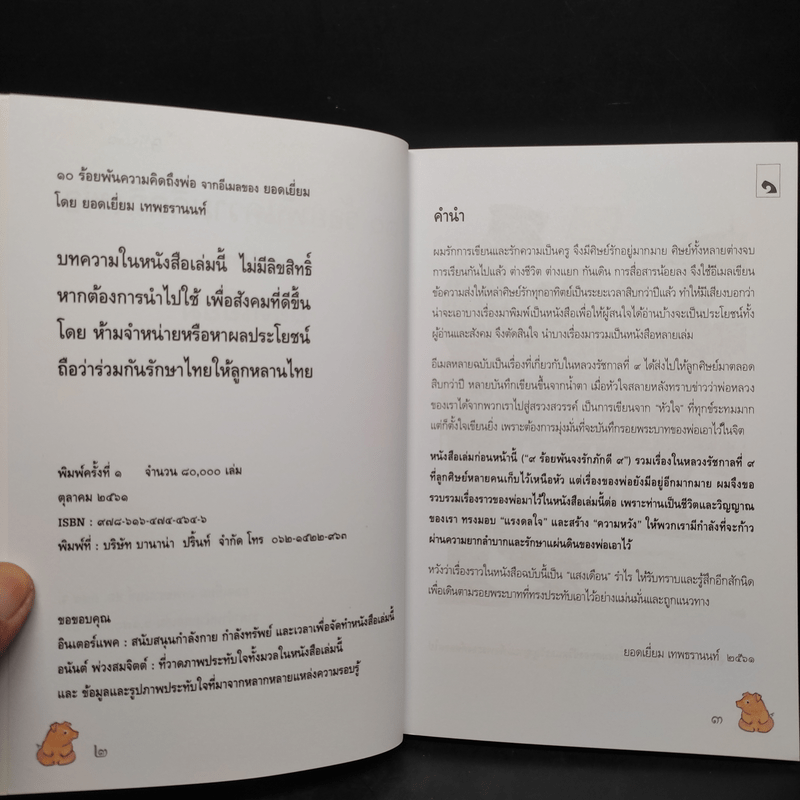 ๑๐ ร้อยพันความคิดถึงพ่อ จากอีเมลของ ยอดเยี่ยม
โดย ยอดเยี่ยม เทพธรานนท์
บทความในหนังสือเล่มนี้ ไม่มีลิขสิทธิ์
หากต้องการนำไปใช้ เพื่อสังคมที่ดีขึ้น
โดย ห้ามจำหน่ายหรือหาผลประโยชน์
ถือว่าร่วมกันรักษาไทยให้ลูกหลานไทย
พิมพ์ครั้งที่ ๑ จำนวน ๘๐,๐๐๐ เล่ม
ตุลาคม ๒๕๖๑
ISBN : ๙๗๘-๖๑๖-๔๗๔-๕๖๔-๖
พิมพ์ที่ : บริษัท บานาน่า ปริ้นท์ จำกัด โทร ๐๖๒-๑๔๒๒-๙๖๓
ขอขอบคุณ
อินเตอร์แพค : สนับสนุนกำลังกาย กำลังทรัพย์ และเวลาเพื่อจัดทำหนังสือเล่มนี้
อนันต์ พ่วงสมจิตต์ : ที่วาดภาพประทับใจทั้งมวลในหนังสือเล่มนี้
และ ข้อมูลและรูปภาพประทับใจที่มาจากหลากหลายแหล่งความรอบรู้
๒
คำนำ
ผมรักการเขียนและรักความเป็นครู จึงมีศิษย์รักอยู่มากมาย ศิษย์ทั้งหลายต่างจบ
การเรียนกันไปแล้ว ต่างชีวิต ต่างแยก กันเดิน การสื่อสารน้อยลง จึงใช้อีเมลเขียน
ข้อความส่งให้เหล่าศิษย์รักทุกอาทิตย์เป็นระยะเวลาสิบกว่าปีแล้ว ทำให้มีเสียงบอกว่า
น่าจะเอาบางเรื่องมาพิมพ์เป็นหนังสือเพื่อให้ผู้สนใจได้อ่านบ้างจะเป็นประโยชน์ทั้ง
ผู้อ่านและสังคม จึงตัดสินใจ นำบางเรื่องมารวมเป็นหนังสือหลายเล่ม
อีเมลหลายฉบับเป็นเรื่องที่เกี่ยวกับในหลวงรัชกาลที่ ๙ ได้ส่งไปให้ลูกศิษย์มาตลอด
สิบกว่าปี หลายบันทึกเขียนขึ้นจากน้ำตา เมื่อหัวใจสลายหลังทราบข่าวว่าพ่อหลวง
ของเราได้จากพวกเราไปสู่สรวงสวรรค์ เป็นการเขียนจาก "หัวใจ" ที่ทุกข์ระทมมาก
แต่ก็ตั้งใจเขียนยิ่ง เพราะต้องการมุ่งมั่นที่จะบันทึกรอยพระบาทของพ่อเอาไว้ในจิต
หนังสือเล่มก่อนหน้านี้ ("๙ ร้อยพันจงรักภักดี ๙") รวมเรื่องในหลวงรัชกาลที่ ๙
ที่ลูกศิษย์หลายคนเก็บไว้เหนือหัว แต่เรื่องของพ่อยังมีอยู่อีกมากมาย ผมจึงขอ
รวบรวมเรื่องราวของพ่อมาไว้ในหนังสือเล่มนี้ต่อ เพราะท่านเป็นชีวิตและวิญญาณ
ของเรา ทรงมอบ "แรงดลใจ" และสร้าง "ความหวัง" ให้พวกเรามีกำลังที่จะก้าว
ผ่านความยากลำบากและรักษาแผ่นดินของพ่อเอาไว้
หวังว่าเรื่องราวในหนังสือฉบับนี้เป็น "แสงเดือน" รำไร ให้รับทราบและรู้สึกอีกสักนิด
เพื่อเดินตามรอยพระบาทที่ทรงประทับเอาไว้อย่างแม่นมั่นและถูกแนวทาง
ยอดเยี่ยม เทพธรานนท์ ๒๕๖๑
๓